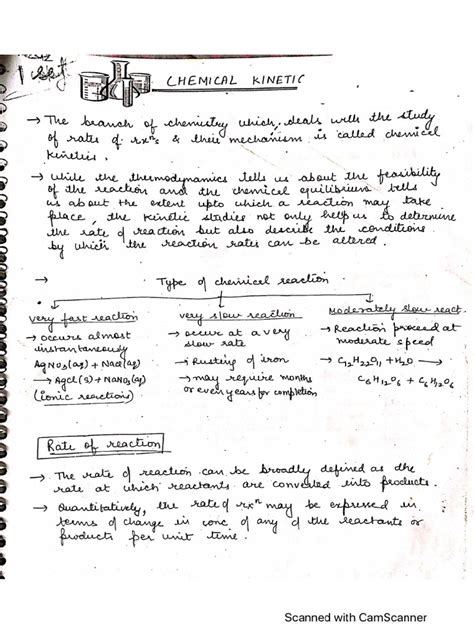 CHEMICAL KINETIC
→ The branch of chemistry which deals with the study
of rates of rxⁿs & their mechanism is called chemical
kinetics.
→ While the thermodynamics tells us about the feasibility
of the reaction and the chemical equilibrium tells
us about the extent upto which a reaction may take
place, the kinetic studies not only help us to determine
the rate of reaction but also describe the conditions
by which the reaction rates can be altered.
→ Type of chemical reaction
very fast reaction
→ occurs almost
instantaneously
AgNO3(aq) + NaCl(aq)
→ AgCl(s) + NaNO3(aq)
(ionic reactions)
very slow reaction
→ occur at a very
slow rate
Rusting of iron
→ may require months
or even years for completion
Moderately slow react.
→ Reaction proceed at
moderate speed
→ C12H22O11 + H2O →
C6H12O6 + C6H12O6
Rate of reaction
→ The rate of reaction can be broadly defined as the
rate at which reactants are converted into products.
→ Quantitatively, the rate of rxⁿ may be expressed in
terms of change in conc of any of the reactants or
products per unit time.
Scanned with CamScanner